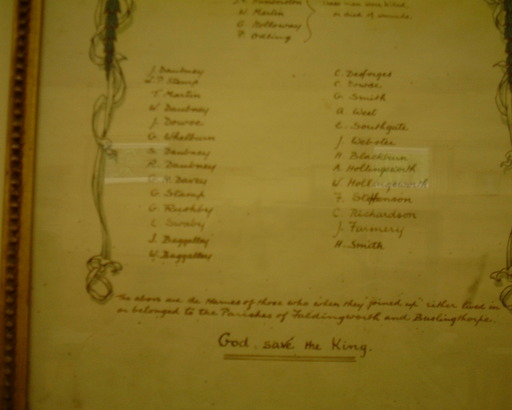 W. Martin
G. Holloway
F. Odling
These men were killed,
or died of wounds.
J. Daubney
T. Stamp
T. Martin
W. Daubney
J. Dowse
G. Whelburn
S. Daubney
R. Daubney
H. Davey
G. Stamp
G. Rushby
Swaby
J. Baggaley
W. Baggaley
C. Desforges
C. Dowse
G. Smith
A. West
C. Southgate
J. Webster
H. Blackburn
A. Hollingsworth
W. Hollingsworth
F. Stephenson
C. Richardson
J. Farmery
H. Smith
The above are the names of those who when they "joined up" either lived in
or belonged to the Parishes of Faldingworth and Buslingthorpe.
God save the King.